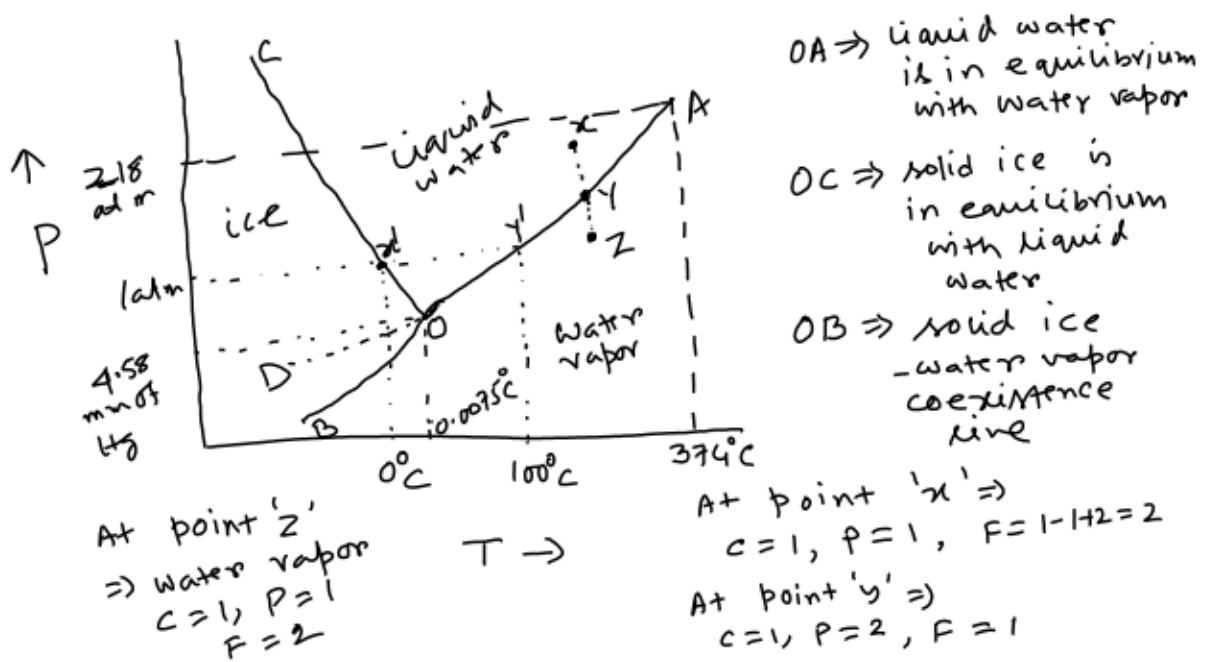 C
A
Liquid
water
x
↑
P
218
atm
ice
Y
Z
x'
Y'
1atm
O
D
water
vapor
4.58
mm of
Hg
B
0.0075°C
0°C
100°C
374°C
T →
OA ⇒ liquid water
is in equilibrium
with water vapor
OC ⇒ solid ice is
in equilibrium
with liquid
water
OB ⇒ solid ice
-water vapor
coexistence
line
At point 'Z'
⇒ water vapor
C=1, P=1
F=2
At point 'x' ⇒
C=1, P=1, F=1-1+2=2
At point 'y' ⇒
C=1, P=2, F=1